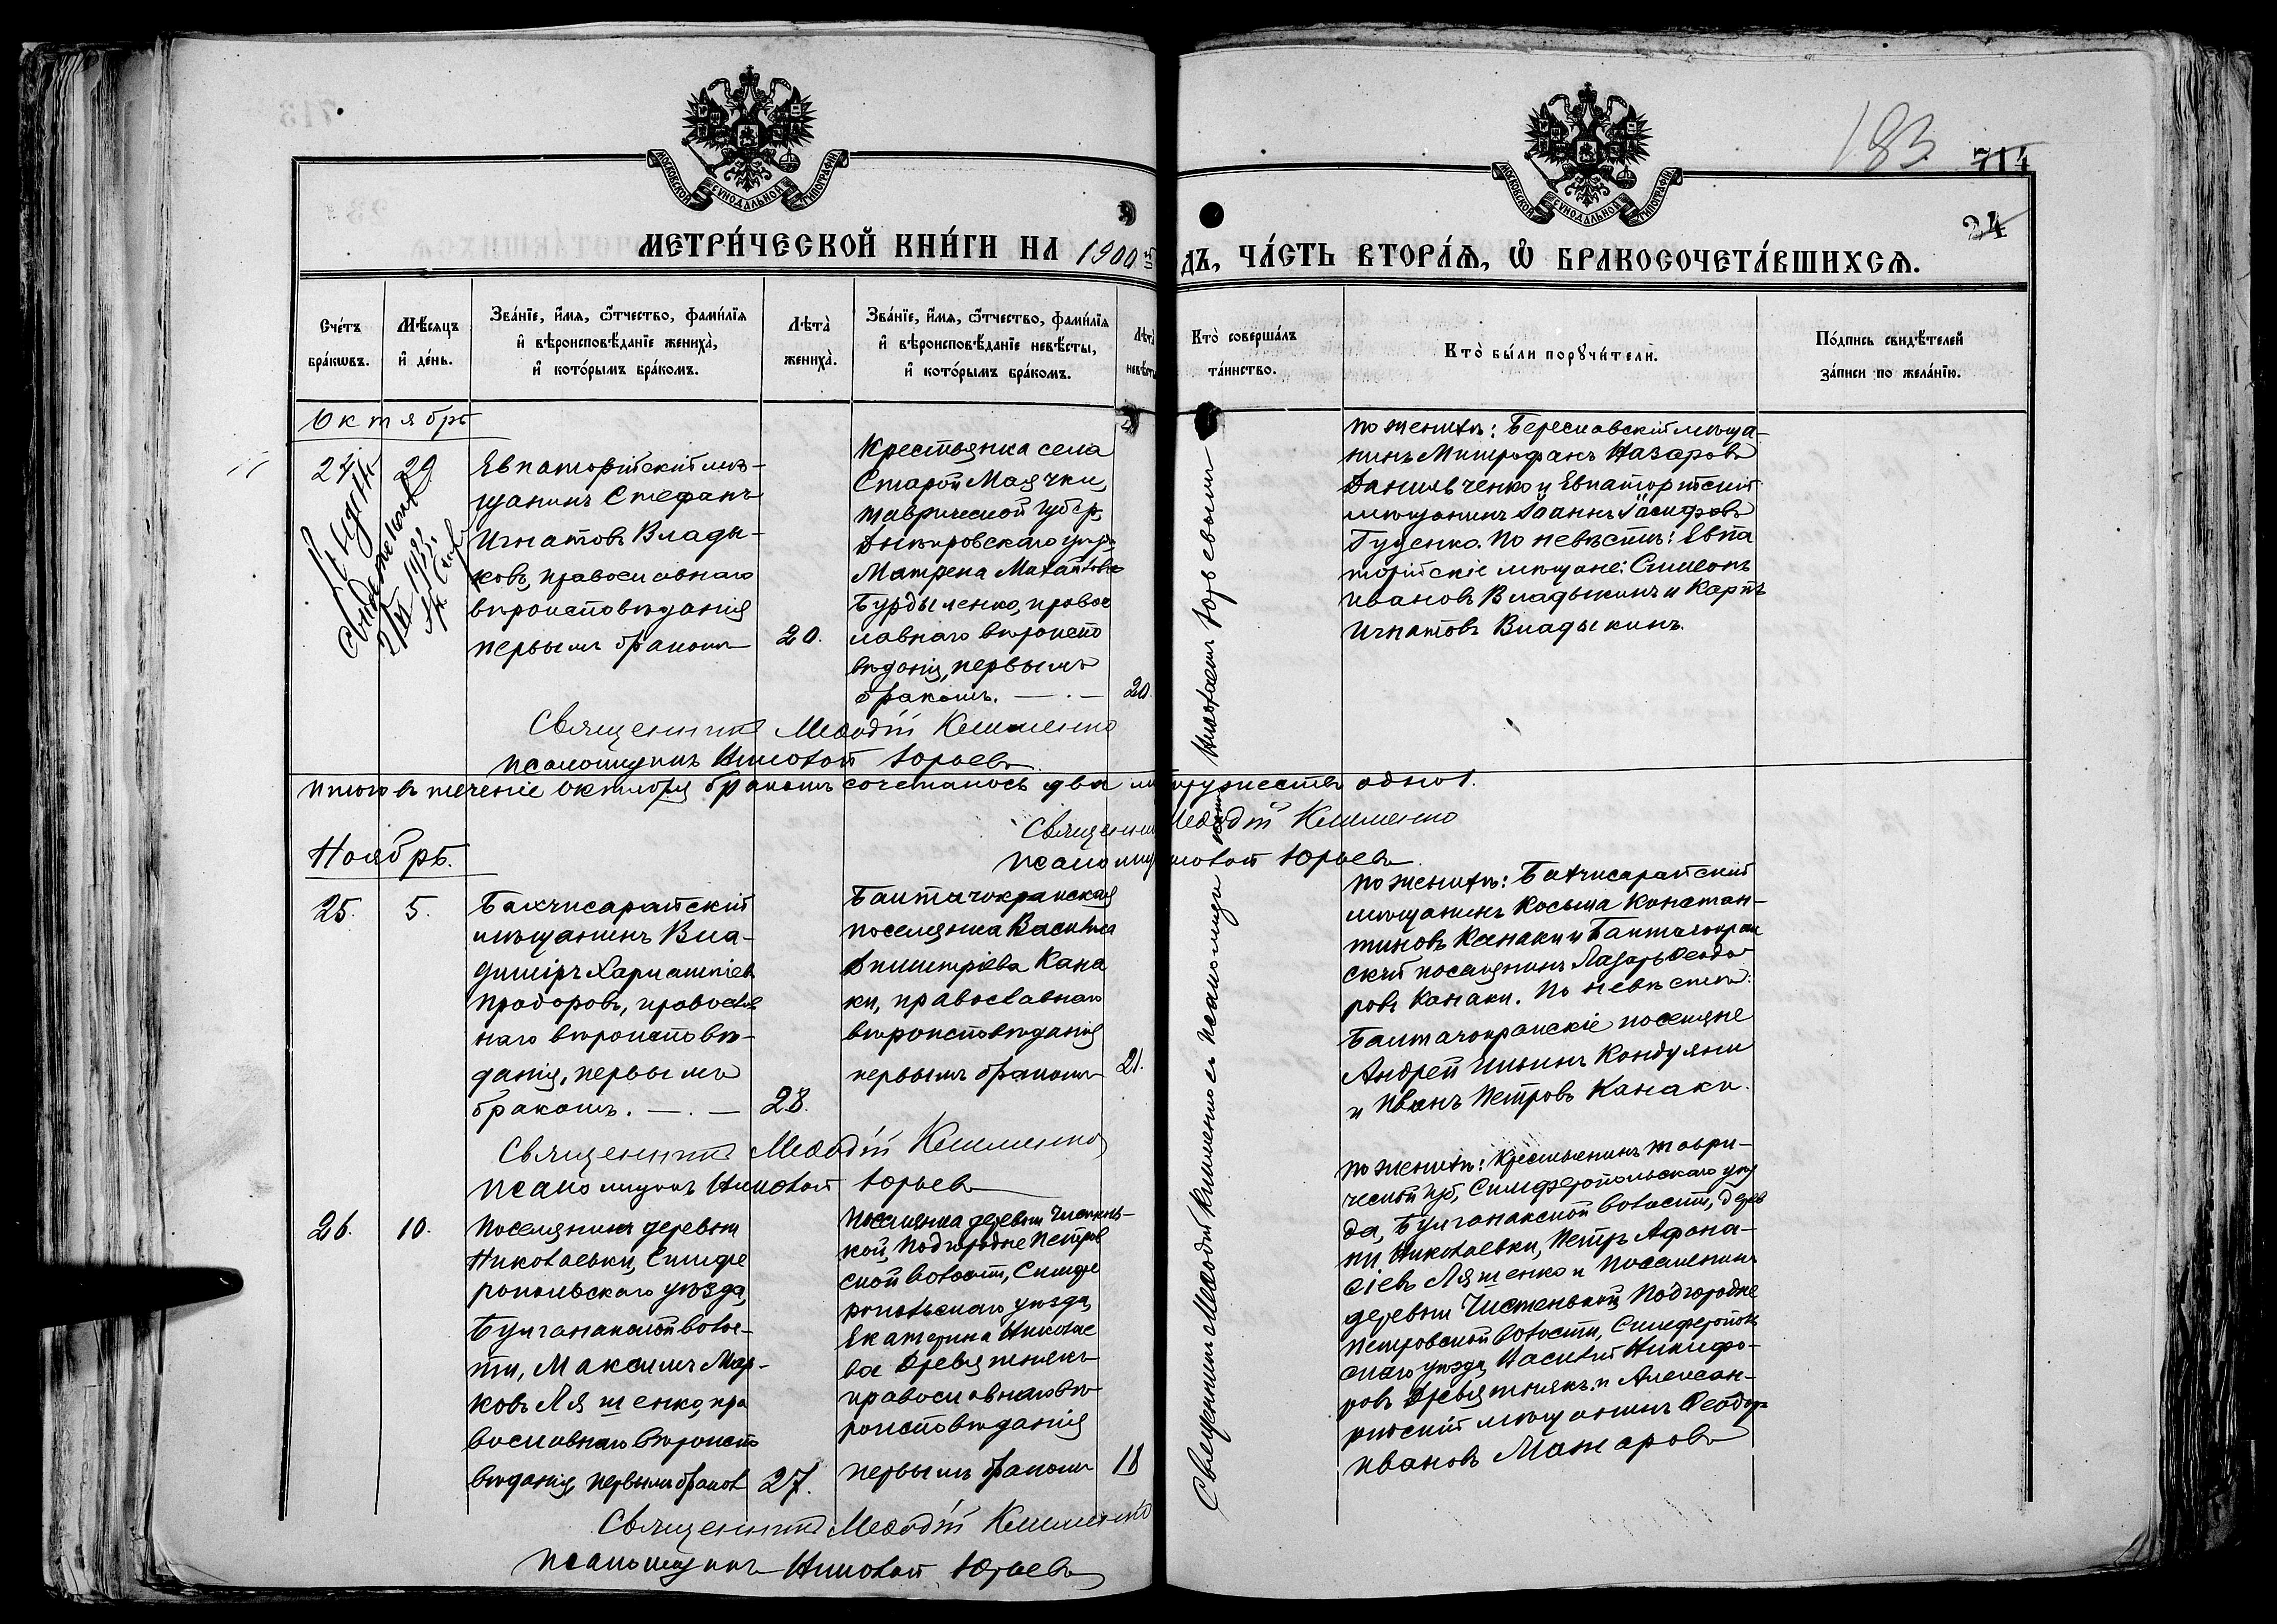 183
714
24
МОСКОВСКОЙ СѴНОДАЛЬНОЙ ТИПОГРАФІИ
МОСКОВСКОЙ СѴНОДАЛЬНОЙ ТИПОГРАФІИ
МЕТРИ́ЧЕСКОЙ КНИ́ГИ НА 1900
ДЪ, ЧА́СТЬ ВТОРА́Ѧ, Ѡ БРАКОСОЧЕТА́ВШИХСѦ.
Сче́тъ
бра́кѡвъ.
Мѣ́сяцъ
и҆ де́нь.
Зва́нїе, и҆́мѧ, ѻ҆́тчество, фами́лїѧ
и҆ вѣроисповѣ́данїе жениха̀,
и҆ кото́рымъ бра́комъ.
Лѣта̀
жениха̀.
Зва́нїе, и҆́мѧ, ѻ҆́тчество, фами́лїѧ
и҆ вѣроисповѣ́данїе невѣ́сты,
и҆ кото́рымъ бра́комъ.
Лѣта̀
невѣсты
Кто̀ соверша́лъ
та́инство.
Кто̀ бы́ли порꙋчи́тели.
По́дпись свидѣ́телей
за́писи по жела́нїю.
Октябрь
24
29
Евпаторійскій мѣ-
щанинъ Стефанъ
Игнатовъ Влады-
ковъ, православнаго
вѣроисповѣданія
первымъ бракомъ
20.
Крестьянка села
Старой Маячки,
Таврической губер,
Днѣпровскаго уѣзда
Матрена Михайлова
Бурдыленко, право
славнаго вѣроиспо
вѣданія, первымъ
бракомъ. — . —
20.
По женихѣ: Бериславскій мѣща-
нинъ Митрофанъ Назаровъ
Данильченко и Евпаторійскій
мѣщанинъ Іоаннъ Іосифовъ
Гуценко. По невѣстѣ: Евпа
торійскіе мѣщане: Симеонъ
Ивановъ Владыкинъ и Карпъ
Игнатовъ Владыкинъ.
Священникъ Меѳодій Клименко
псаломщикъ Николай Юрьевъ
Итого въ теченіе октября бракомъ сочеталось два супружества одно 1.
Священникъ Меѳодій Клименко
псаломщикъ Николай Юрьевъ
Ноябрь.
25.
5.
Бахчисарайскій
мѣщанинъ Вла-
диміръ Харлампіевъ
Продоровъ, православ
наго вѣроисповѣ-
данія, первымъ
бракомъ. — . —
28.
Баптачокракская
поселянка Василиса
Дмитріева Кана
ки, православнаго
вѣроисповѣданія
первымъ бракомъ
21.
По женихѣ: Бахчисарайскій
мѣщанинъ Косьма Констан-
тиновъ Канаки и Баптачокрак
скій поселянинъ Лазарь Ѳеодо
ровъ Канаки. По невѣстѣ:
Баптачокракскіе поселяне
Андрей Ильинъ Кондуяни
и Иванъ Петровъ Канаки.
Священникъ Меѳодій Клименко
псаломщикъ Николай Юрьевъ
26.
10.
Поселянинъ деревни
Николаевки, Симфе
ропольскаго уѣзда,
Булганакской волос-
ти, Максимъ Мар-
ковъ Ляшенко, пра
вославнаго вѣроиспо
вѣданія, первымъ браком
27.
Поселянка деревни Чистень-
кой, Подгородне Петров
ской волости, Симфе
ропольскаго уѣзда,
Екатерина Николае
ва Древятнякъ
православнаго вѣ
роисповѣданія
первымъ бракомъ
18
По женихѣ: Крестьянинъ Таври-
ческой губ, Симферопольскаго уѣз
да, Булганакской волости, дерев
ни Николаевки, Петръ Афана-
сіевъ Ляшенко и поселянинъ
деревни Чистенькой, Подгородне
Петровской волости, Симферополь
скаго уѣзда, Василій Никифо-
ровъ Древятнякъ и Алексан-
рійскій мѣщанинъ Ѳеодоръ
Ивановъ Макаровъ
Священникъ Меѳодій Клименко
псаломщикъ Николай Юрьевъ
Священникъ Меѳодій Клименко съ псаломщикомъ Николаемъ Юрьевымъ